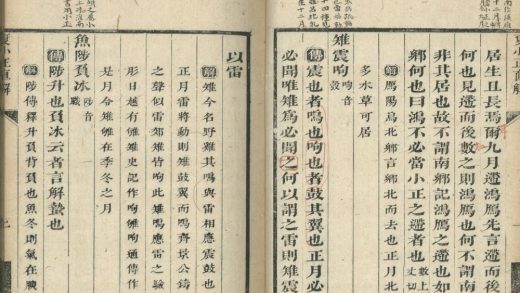 居生且長焉爾九月遰鴻鴈先言遰而
何也見遰而後數之則鴻鴈也何不
非其居也故不謂南鄉記鴻鴈之遰
鄉何也曰鴻不必當小正之遰者也 數上丈切
解 鴈陽鳥北鄉言鄉北而去也正月北
多水草可居
雉震呴 呴音
傳 震也者鳴也呴也者鼓其翼也正月必
必聞唯雉為必聞之何以謂之雷則雉震
以雷
解 雉今名野雞其鳴與雷相應震鼓也
正月雷將動則雉鼓翼而鳴齊景公鑄
之聲似雷郊雉皆呴此雉鳴應雷之驗
彤日越有雊雉史記作呴雊呴通傳作
是月令雉雊在季冬之月
魚陟負冰 陟音職
傳 陟升也負冰云者言解蟄也
解 陟傳釋升負背負也魚冬則氣在腴